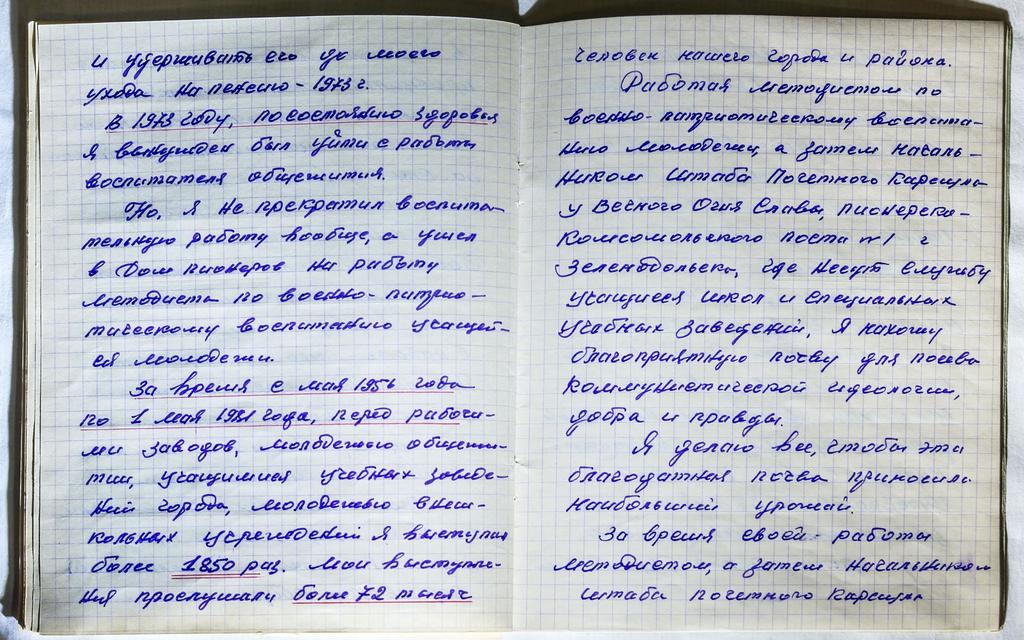 и удерживать его до моего
ухода на пенсию - 1973 г.
В 1973 году, по состоянию здоровья
я вынужден был уйти с работы
воспитателя общежития.
Но, я не прекратил воспита-
тельную работу вообще, а ушел
в Дом пионеров на работу
методиста по военно-патрио-
тическому воспитанию учащей-
ся молодежи.
За время с мая 1956 года
по 1 мая 1981 года, перед рабочи-
ми заводов, молодежью общежи-
тий, учащимися учебных заведе-
ний города, молодежью внеш-
кольных учреждений я выступал
более 1850 раз. Мои выступле-
ния прослушали более 72 тысяч
человек нашего города и района.
Работая методистом по
военно-патриотическому воспита-
нию молодежи, а затем началь-
ником Штаба Почетного Караула
у Вечного Огня Славы, пионерско-
комсомольского поста №1 г
Зеленодольска, где несут службу
учащиеся школ и специальных
учебных заведений, я нахожу
благоприятную почву для посева
коммунистической идеологии,
добра и правды.
Я делаю все, чтобы эта
благодатная почва приносила
наибольший урожай.
За время своей работы
методистом, а затем начальником
штаба почетного караула